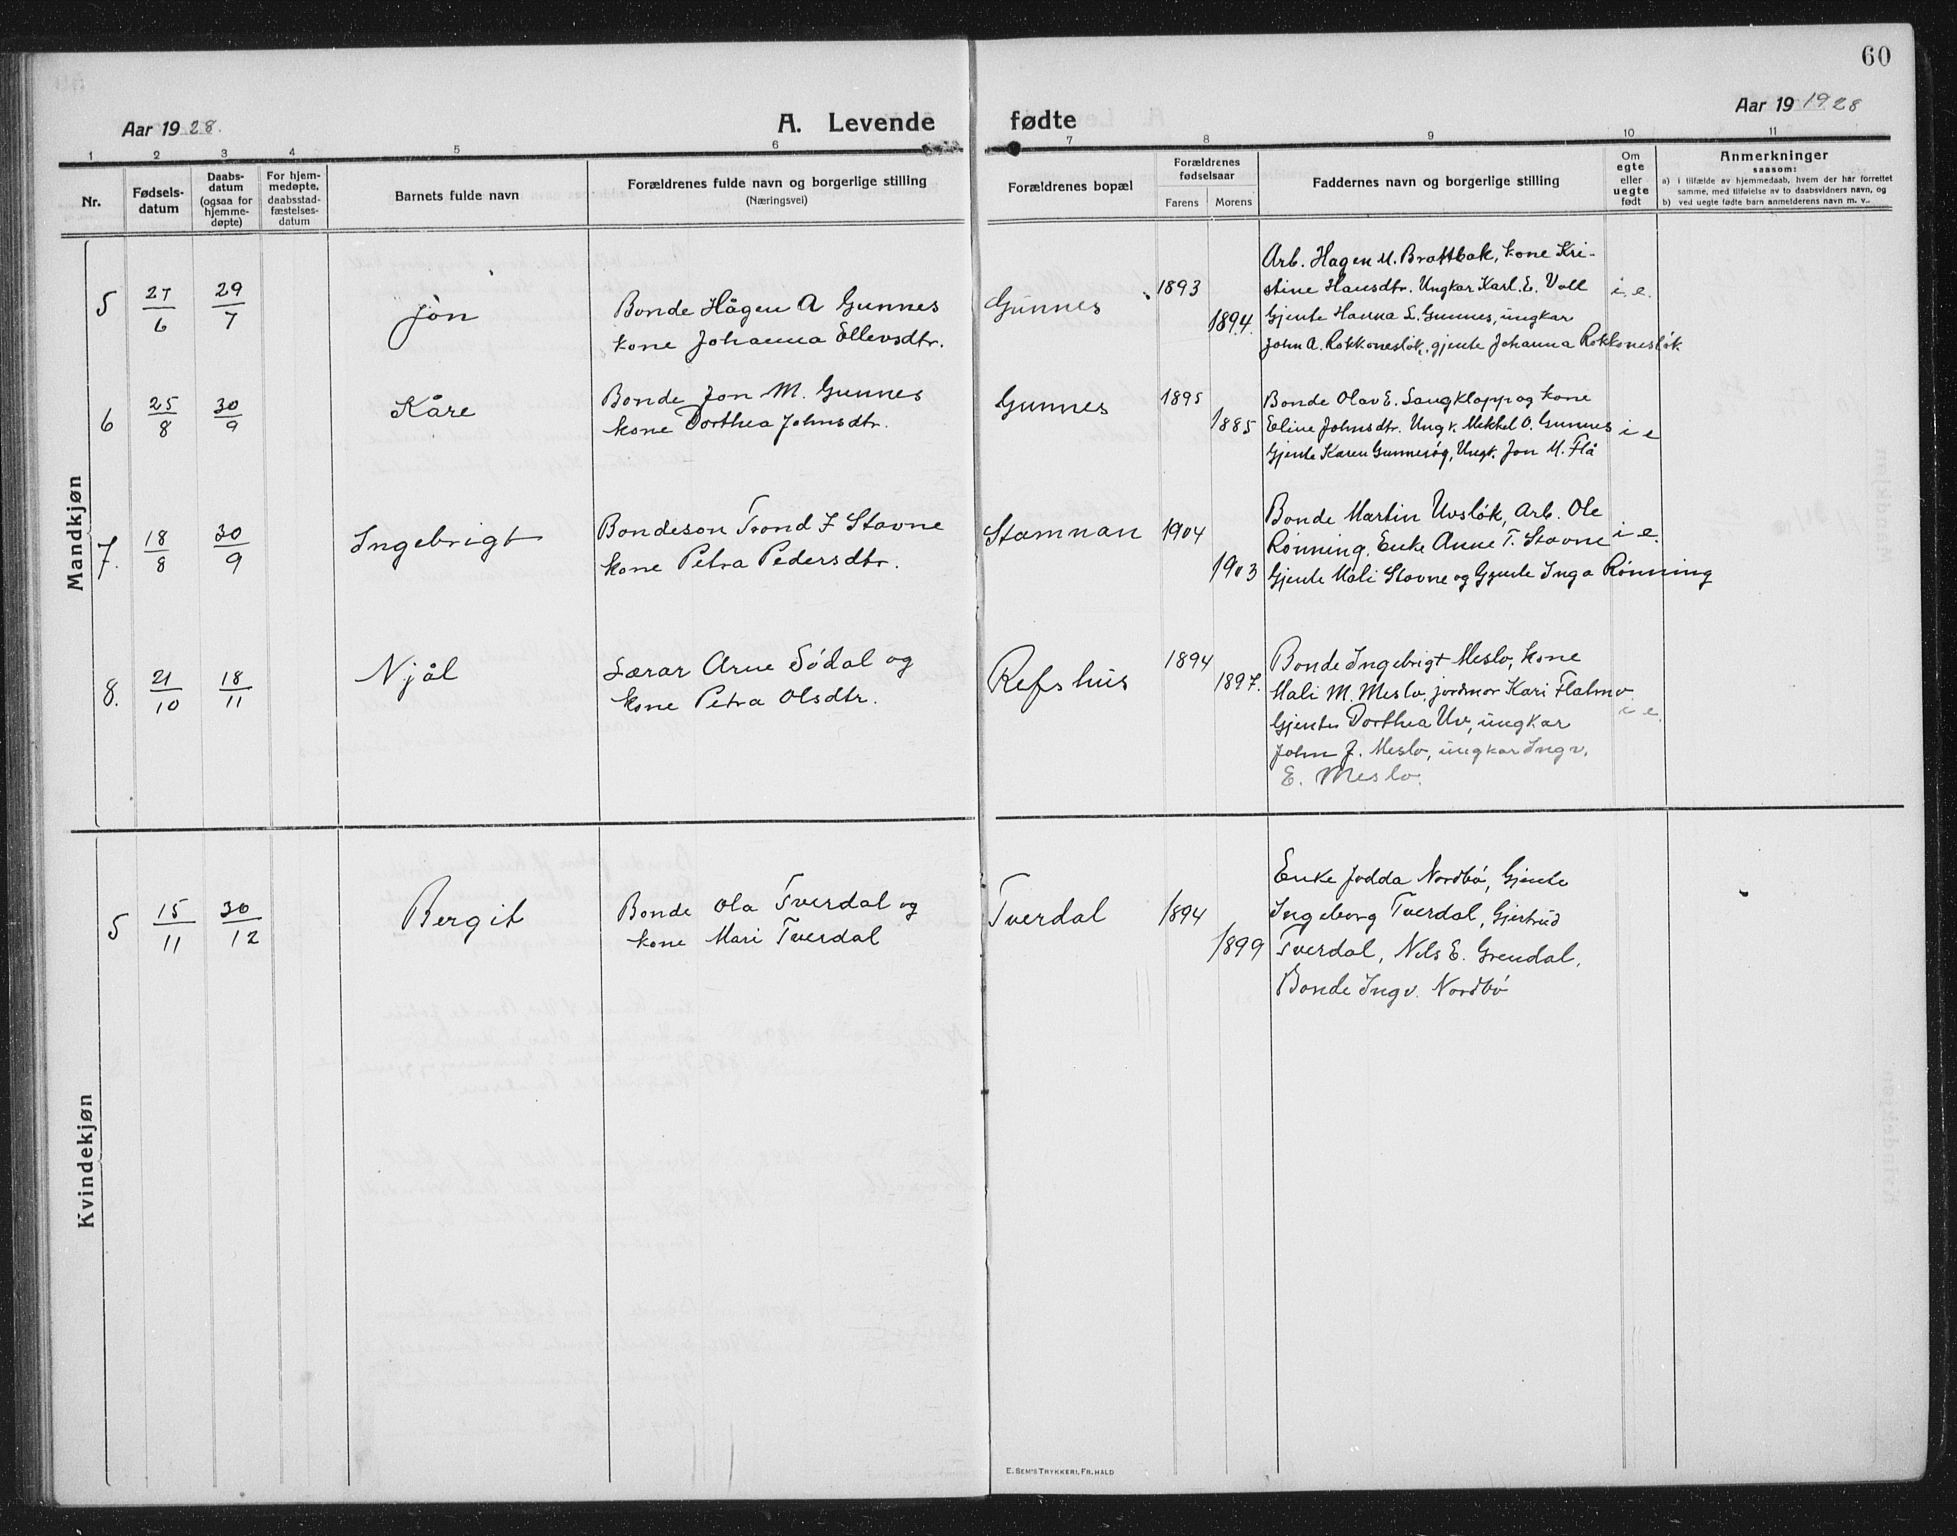 60
Aar 1928.
A. Levende fødte
Aar 19 1928
1 2 3 4 5 6 7 8 9 10 11
Nr.
Fødsels-
datum
Daabs-
datum
(ogsaa for
hjemme-
døpte)
For hjem-
medøpte,
daabsstad-
fæstelses-
datum
Barnets fulde navn
Forældrenes fulde navn og borgerlige stilling
(Næringsvei)
Forældrenes bopæl
Forældrenes
fødselsaar
Farens Morens
Faddernes navn og borgerlige stilling
Om
egte
eller
uegte
født
Anmerkninger
saasom:
a) i tilfælde av hjemmedaab, hvem der har forrettet
samme, med tilføielse av to daabsvidners navn, og
b) ved uegte fødte barn anmelderens navn m. v..
Mandkjøn
5 27/6 29/7 Jon
Bonde Hågen A Gunnes
kone Johanna Ellevsdtr.
Gunnes 1893 1894.
Arb. Hagen M. Brattbak, kone Kri-
stine Hansdtr. Ungkar Karl. E. Voll
Gjente Hanna E. Gunnes, ungkar
John A. Rokkonesløk, gjente Johanna Rokkonesløk
i. e.
6 25/8 30/9 Kåre
Bonde Jon M. Gunnes
kone Dorthea Johnsdtr.
Gunnes 1895 1885
Bonde Olav E. Langklopp og kone
Eline Johnsdtr. Ungk. Mikkel O. Gunnes
Gjente Karen Gunnesøg, Ungk. Jon M. Flå
i e
7. 18/8 30/9 Ingebrigt
Bondeson Trond I Stavne
kone Petra Pedersdtr.
Stamnan 1904 1903
Bonde Martin Uvsløk, Arb. Ole
Rønning, Enke Anne T. Stavne
Gjente Mali Stavne og Gjente Inga Rønning
i e.
8. 21/10 18/11 Njål
Lærar Arne Södal og
kone Petra Olsdtr.
Refshus 1894 1897.
Bonde Ingebrigt Meslo, kone
Mali M. Meslo, jordmor Kari Flatmo
Gjente Dorthea Uv, ungkar
John J. Meslo, ungkar Ingv.
E. Meslo.
i e.
Kvindekjøn
5 15/11 30/12 Bergit
Bonde Ola Tverdal og
kone Mari Tverdal
Tverdal 1894 1899
Enke Jodda Nordbø, Gjente
Ingeborg Tverdal, Gjertrud
Tverdal, Nils E. Grendal,
Bonde Ingv. Nordbø
E. SEM'S TRYKKERI, FR. HALD